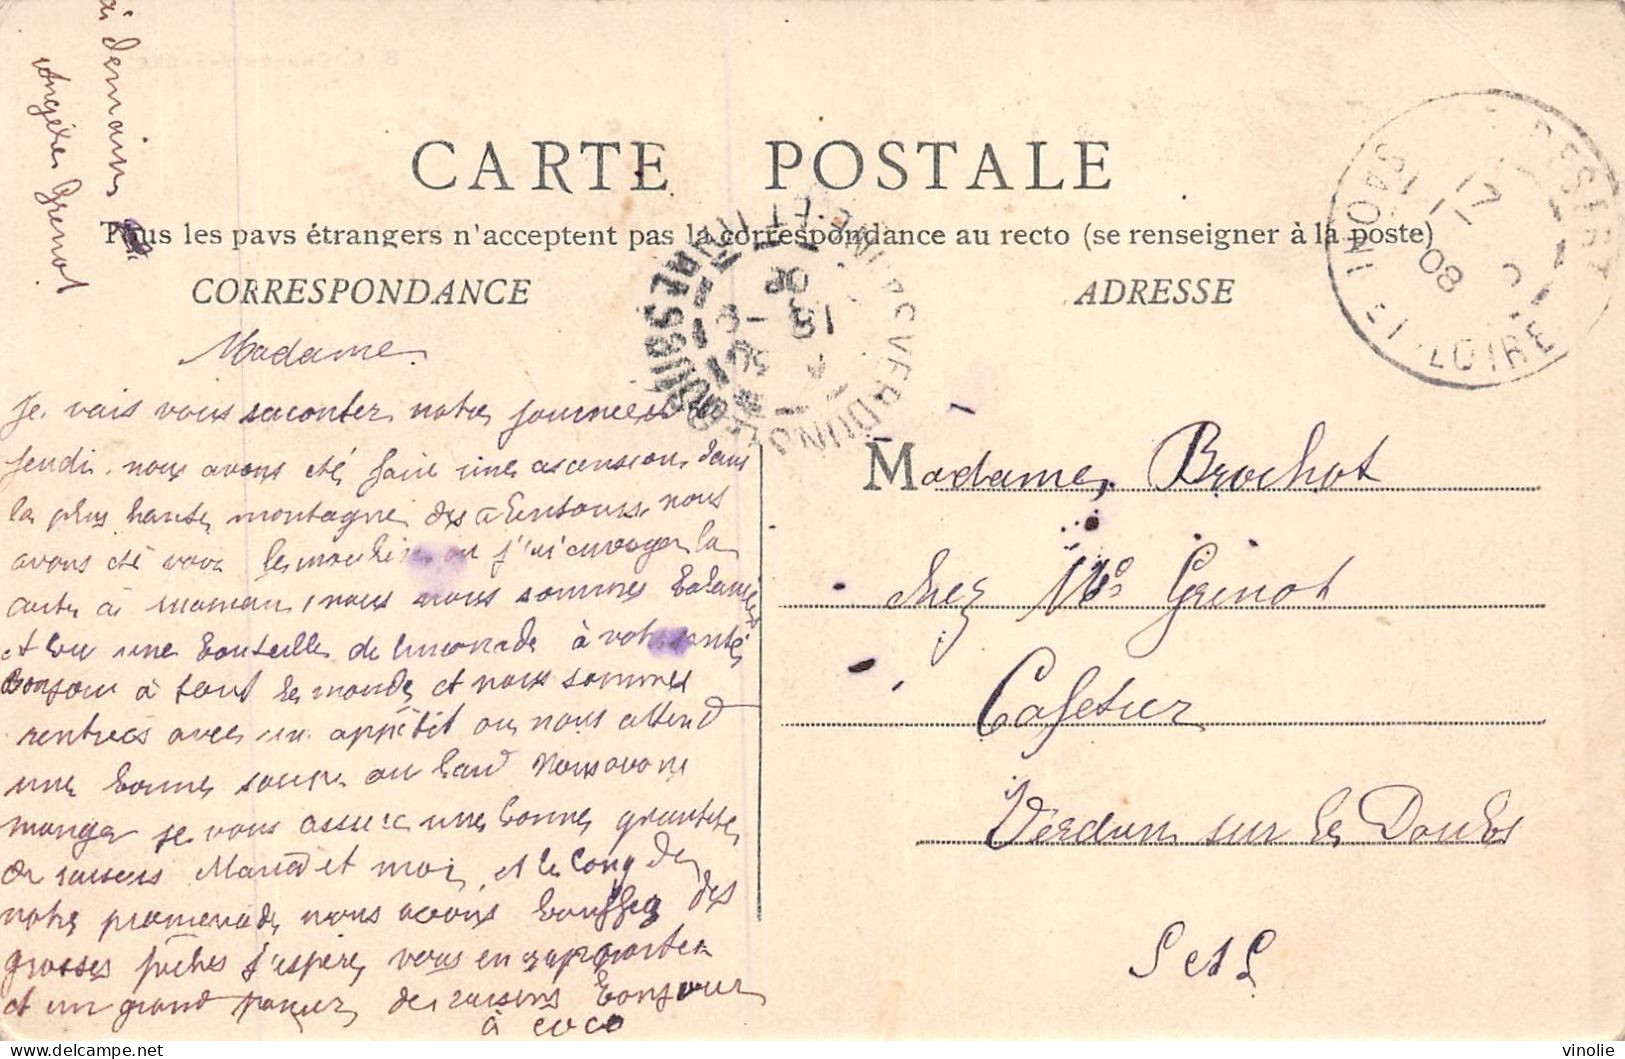 à demain
Angèle Grenot
CARTE POSTALE
Tous les pays étrangers n'acceptent pas la correspondance au recto (se renseigner à la poste)
CORRESPONDANCE
ADRESSE
Madame
Je vais vous raconter notre journee
jeudi. nous avons été faire une ascension dans
la plus haute montagne des alentours. nous
avons été voir le moulin ou j'ai envoyer la
carte à maman, nous nous sommes balancées
et bu une bouteille de limonade à votre santé
Bonjour à tout le monde et nous sommes
rentrées avec un appétit ou nous attend
une bonne soupe au lard Nous avons
manger je vous assure une bonne quantité
de raisins Maria et moi, et le long de
notre promenade nous avons bouffer des
grosses pêches j'espère vous en rapporter
et un grand panier de raisins Bonjour
à coco
17 08
ET LOIRE
VERDUN
18
Madame Brochot
chez Mr Grenot
Cafetier
Verdun sur le Doubs
S et L
vinolie